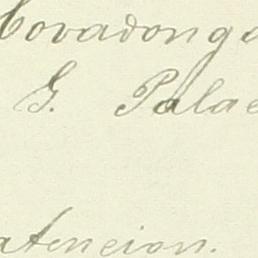 Covadonga
G. Palae
atencion.